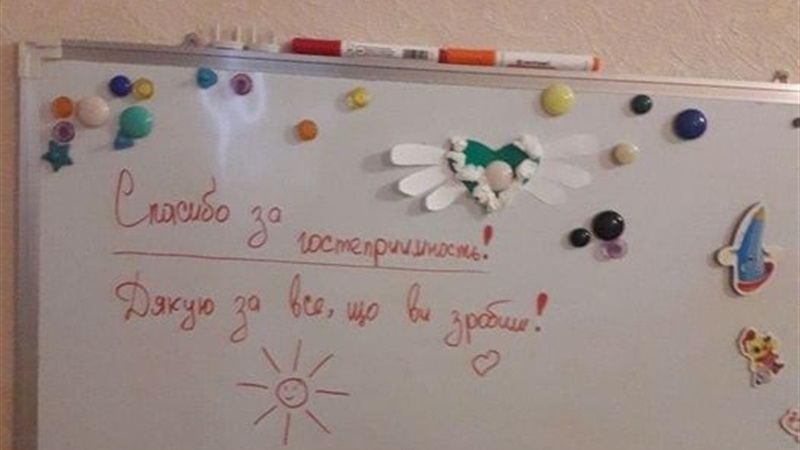 Спасибо за
гостеприимность!
Дякую за все, що ви зробили!